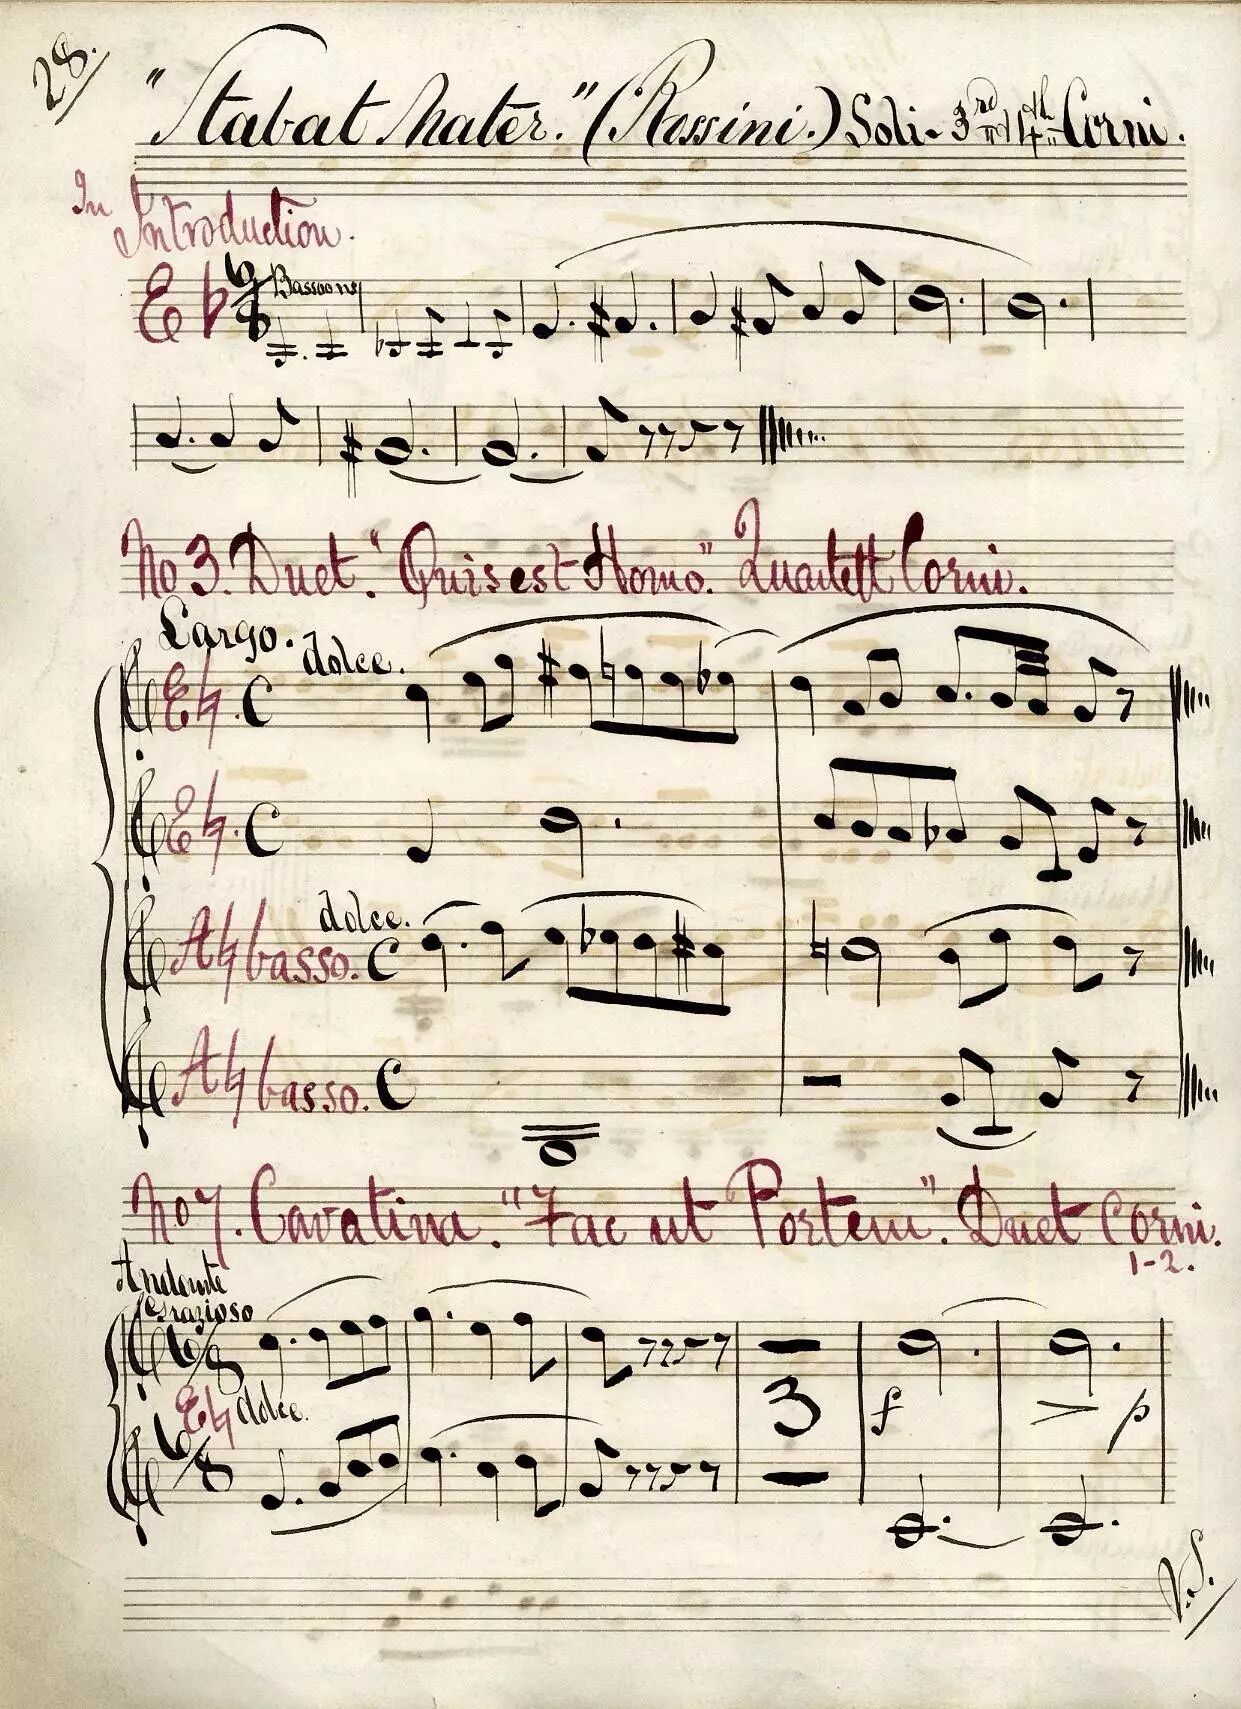 28.
"Stabat Mater." (Rossini.) Soli - 3rd 4th Corni.
In Introduction.
E♭ 6/8 Bassoons
No 3. Duet. "Quis est Homo." Quartett Corni.
Largo. dolce.
E♮. C
E♮. C
dolce.
A♮ basso. C
A♮ basso. C
No 7. Cavatina. "Fac ut Portem". Duet Corni.
1-2.
Andante
Grazioso
6/8
E♮ dolce.
3 f > p
6/8
V.S.